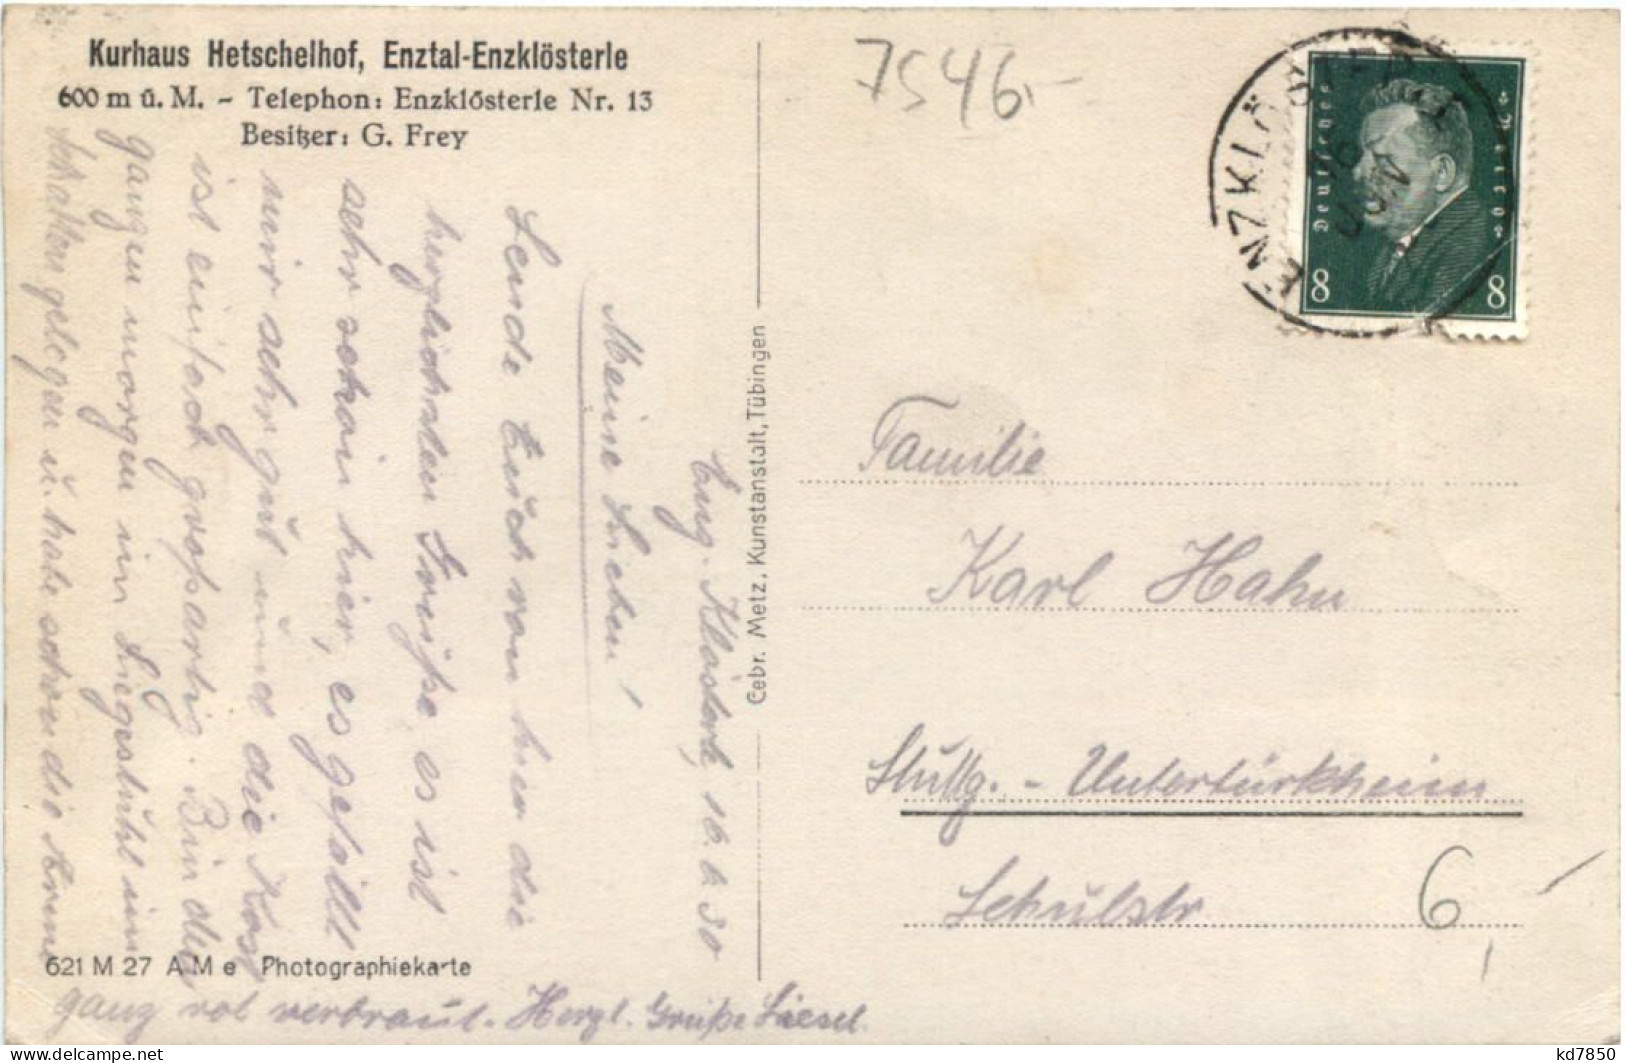 Kurhaus Hetschelhof, Enztal-Enzklösterle
600 m ü. M. - Telephon: Enzklösterle Nr. 13
Besitzer: G. Frey
7546,-
ENZKLÖSTERLE
Deutsches Reich
8 8
Enz-Klösterle, 16. 6. 30
Meine Lieben!
Sende Euch von hier die
herzlichsten Grüße, es ist
sehr schön hier, es gefällt
mir sehr gut und die Kost
ist einfach großartig. Bin den
ganzen morgen im Liegestuhl im
Schatten gelegen u. habe schon die Arme
ganz rot verbrannt. Herzl. Grüße Liesel.
Gebr. Metz, Kunstanstalt, Tübingen
Familie
Karl Hahn
Stuttg. - Untertürkheim
Schulstr
6,-
621 M 27 A M e Photographiekarte
kd7850